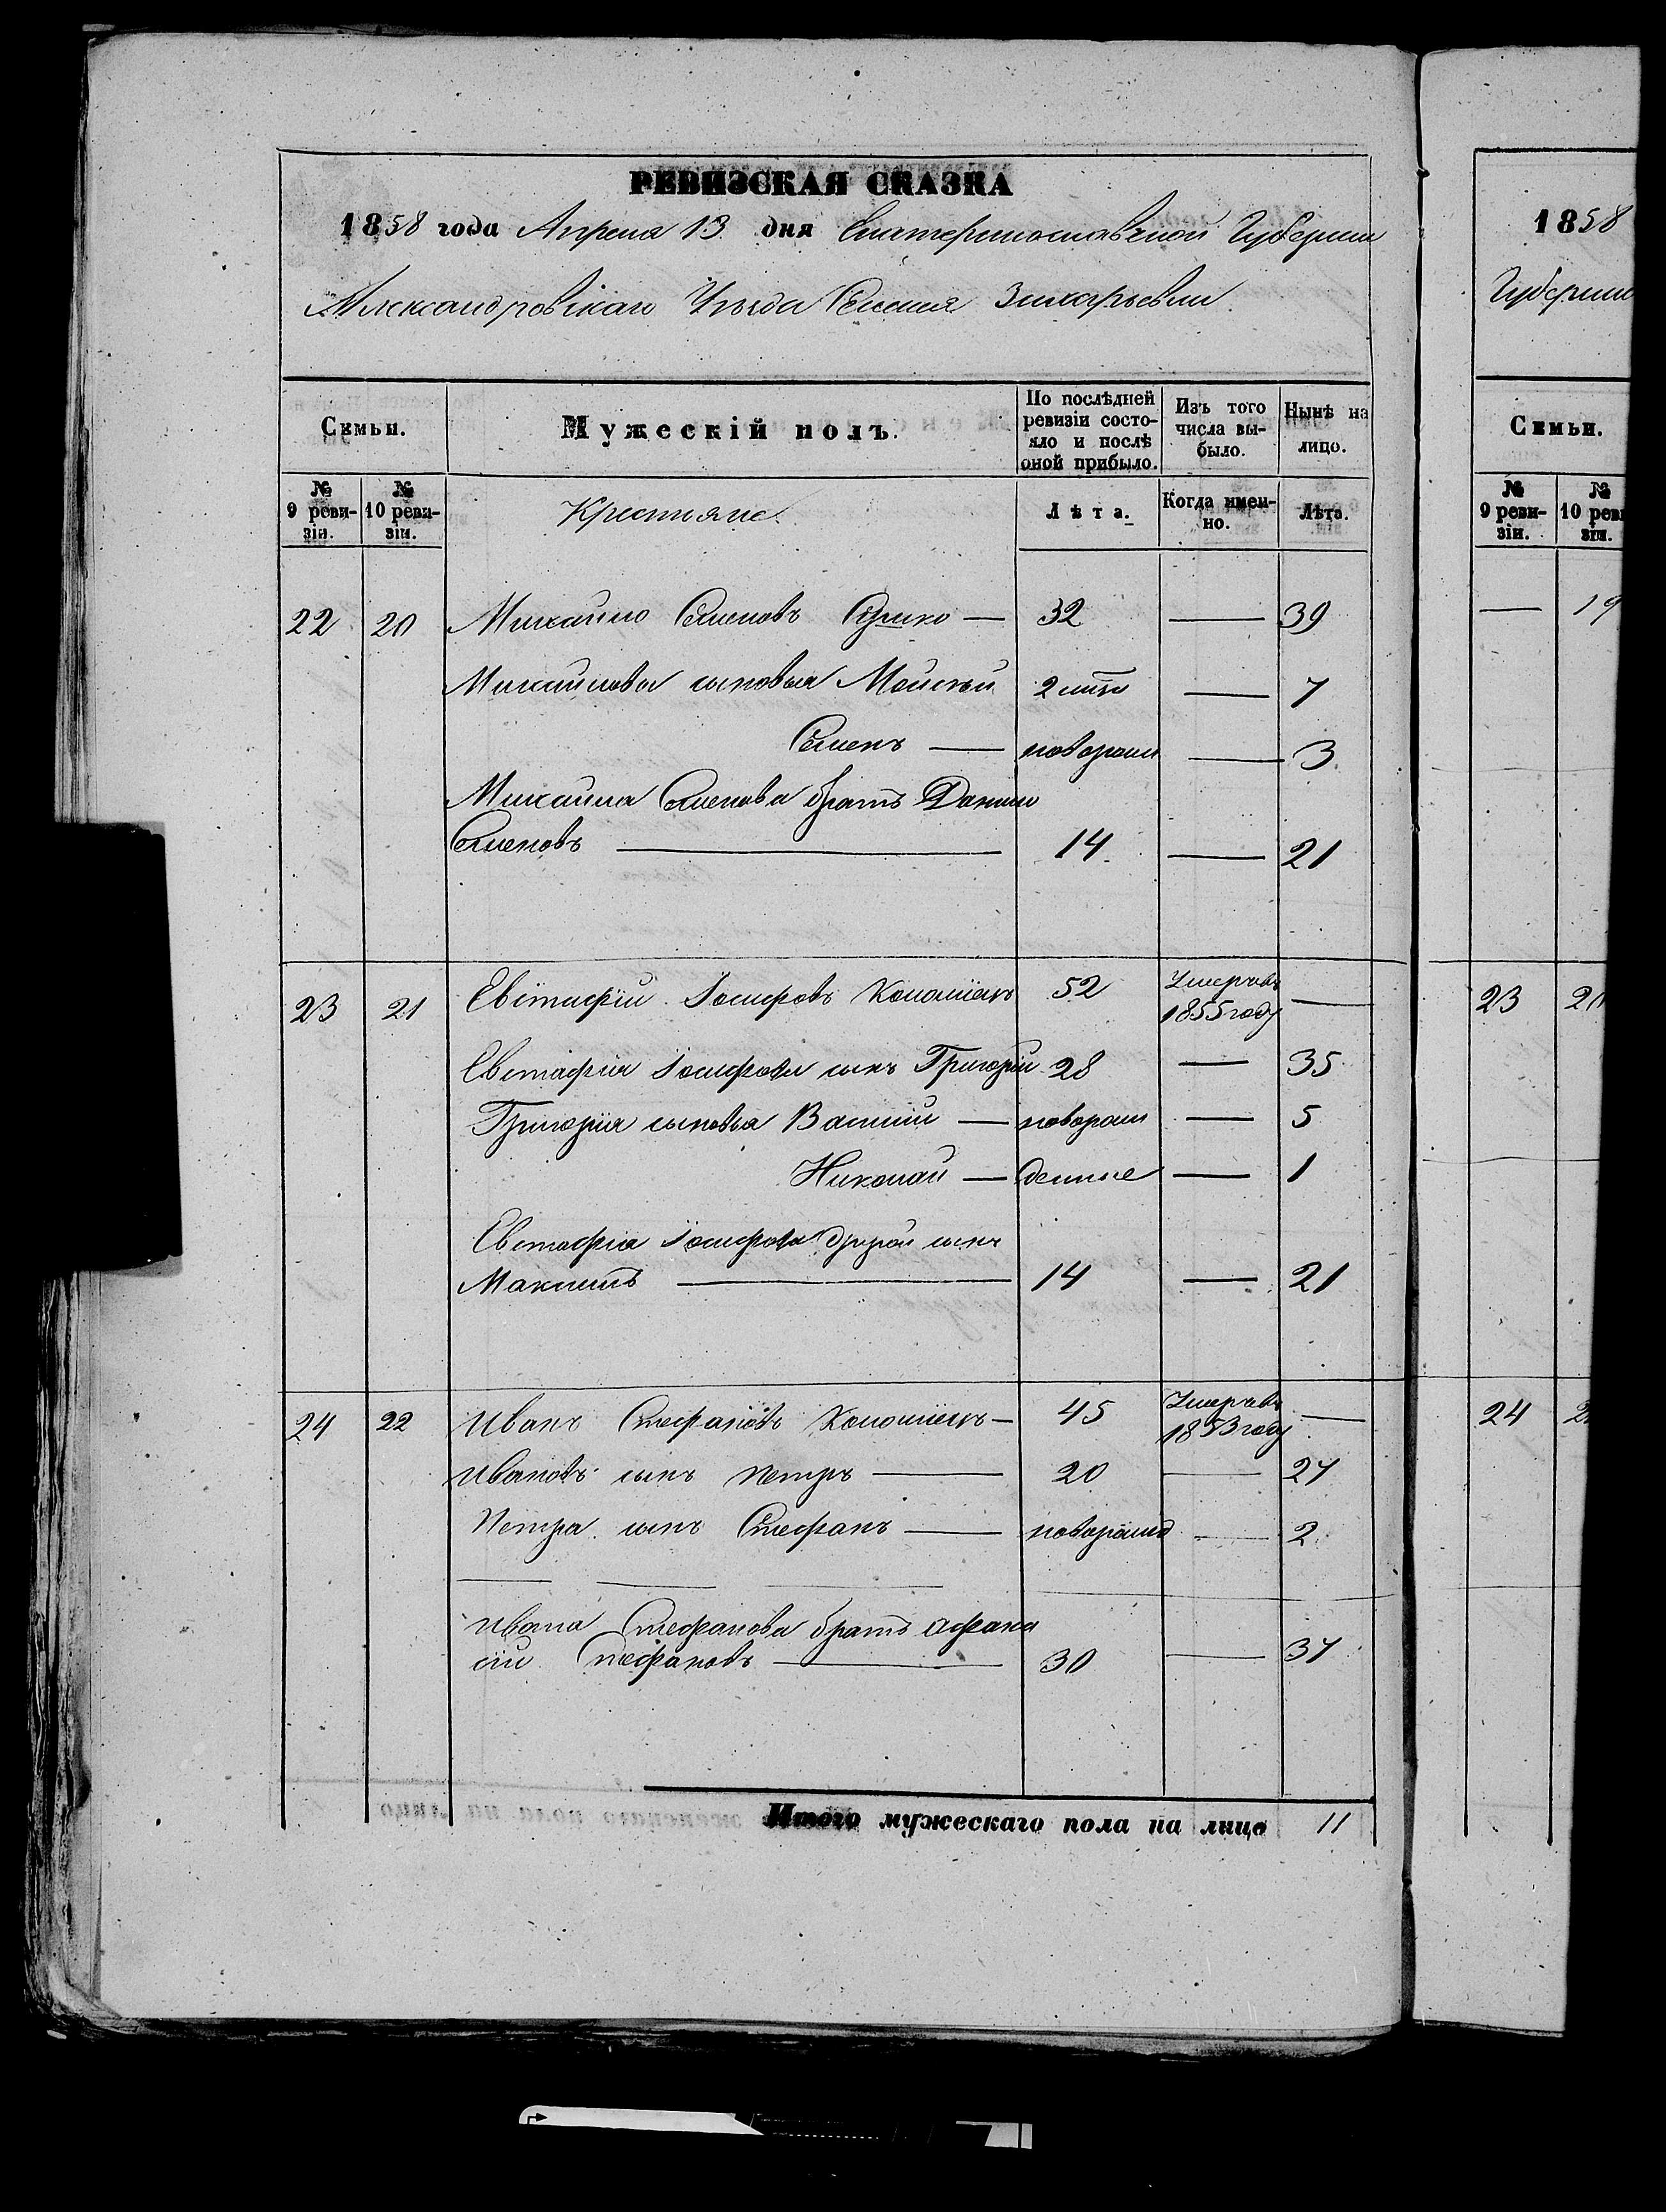 РЕВИЗСКАЯ СКАЗКА
1858 года Апреля 13 дня Екатеринославской Губернии
Александровскаго Уѣзда Захарьевки
Семьи.
Мужескій полъ.
По послѣдней ревизіи состояло и послѣ оной прибыло.
Изъ того числа выбыло.
Нынѣ на лицо.
№ 9 ревизіи.
№ 10 ревизіи.
Крестьяне.
Лѣта.
Когда именно.
Лѣта.
22 20 Михайло Семеновъ — 32 — 39
Михайлова сыновья Мойсѣй — 7
Семенъ — новорожд — 3
Михайла Семенова братъ Данило
Семеновъ — 14 — 21
23 21 Евстафій Іосифовъ Коломіецъ 52 Умеръ въ 1855 году —
Евстафія Іосифова сынъ Григорій 28 — 35
Григорія сыновья Василій — новорож — 5
Николай — денные — 1
Евстафія Іосифова другой сынъ
Максимъ — 14 — 21
24 22 Иванъ Стефановъ Коломіецъ — 45 Умеръ въ 1853 году —
Ивановъ сынъ Петръ — 20 — 27
Петра сынъ Стефанъ — новорожд — 2
Ивана Стефанова братъ Афана
сій Стефановъ — 30 — 37
Итого мужескаго пола на лицо 11
1858
Губерніи
Семьи.
№ 9 ревизіи.
№ 10 реви
зіи.
— 19
23
24